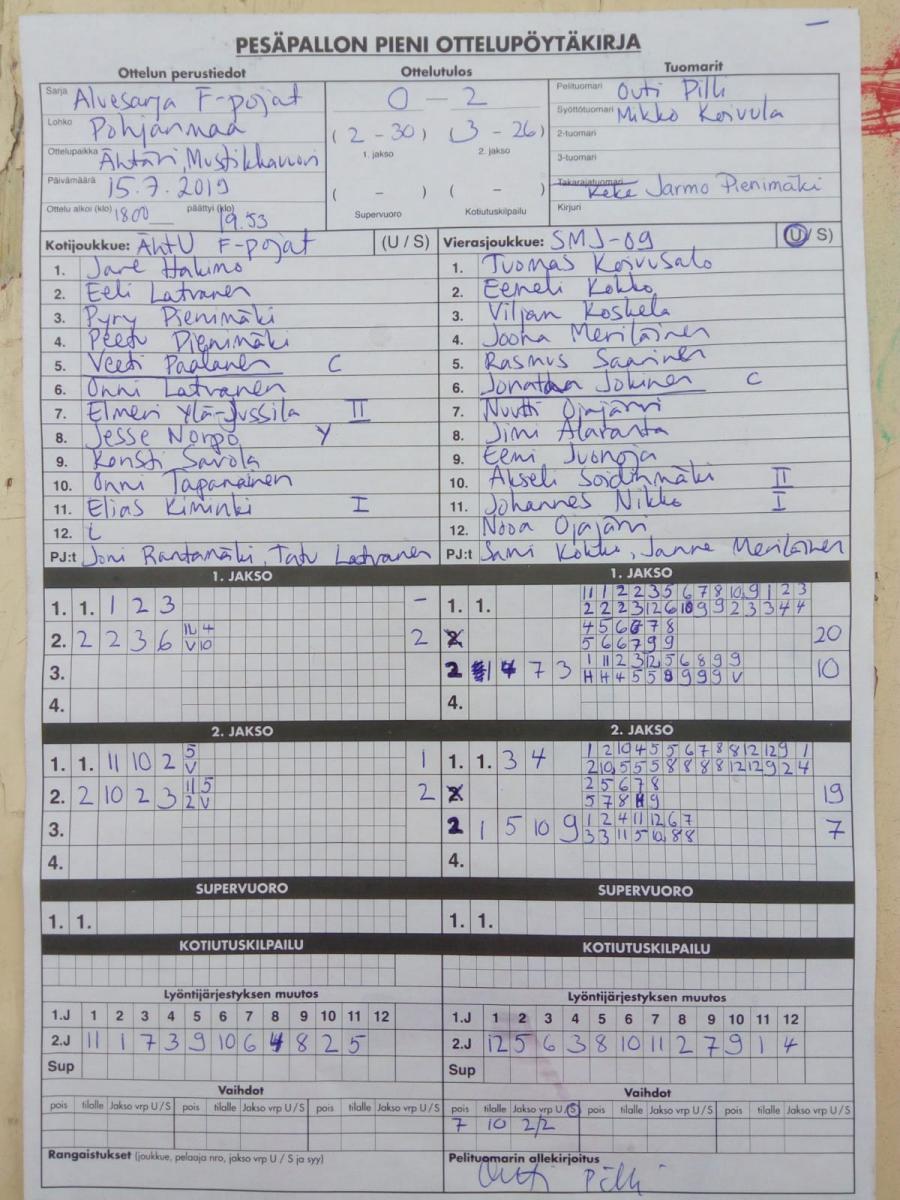 PESÄPALLON PIENI OTTELUPÖYTÄKIRJA
Ottelun perustiedot
Sarja Aluesarja F-pojat
Lohko Pohjanmaa
Ottelupaikka Ähtäri, Mustikkavuori
Päivämäärä 15.7.2019
Ottelu alkoi (klo) 1800 päättyi (klo) 19.53
Ottelutulos
0 - 2
(2 - 30) (3 - 26)
1. jakso 2. jakso
( - ) ( - )
Supervuoro Kotiutuskilpailu
Tuomarit
Pelituomari Outi Pilli
Syöttötuomari Mikko Koivula
2-tuomari
3-tuomari
Takarajatuomari Keke Jarmo Pienimäki
Kirjuri
Kotijoukkue: ÄhtU F-pojat (U / S)
1.
2. Eeli Latvanen
3. Pyry Pienimäki
4. Peetu Pienimäki
5. Veeti Paalanen C
6. Onni Latvanen
7. Elmeri Ylä-Jussila II
8. Jesse Norpo Y
9. Konsti Savola
10. Onni Tapanainen
11. Elias Kiminki I
12.
PJ:t Joni Rantamäki, Tatu Latvanen
Vierasjoukkue: SMJ-09 (U / S)
1. Tuomas Koivusalo
2. Eemeli Kokko
3. Viljan Koskela
4. Joona Meriläinen
5. Rasmus Saarinen
6. Jonatan Jokinen C
7. Nuutti Ojajärvi
8. Jimi Alaranta
9. Eemi Juonoja
10. Akseli Soidinmäki II
11. Johannes Nikko I
12. Nooa Ojajärvi
PJ:t Sami Kokko, Janne Meriläinen
1. JAKSO
1. 1. 1 2 3 -
2. 2 2 3 6 11 4 2
V 10
3.
4.
1. JAKSO
1. 1. 11 1 2 2 3 5 6 7 8 10 9 1 2 3
2 2 2 3 12 6 10 9 9 2 3 3 4 4
2 4 5 6 6 7 8 20
5 6 6 7 9 9
2 1 4 7 3 1 11 2 3 12 5 6 8 9 9 10
H H 4 5 5 8 9 9 9 V
4.
2. JAKSO
1. 1. 11 10 2 5 1
V
2. 2 10 2 3 11 5 2
2 V
3.
4.
2. JAKSO
1. 1. 3 4 1 2 10 4 5 5 6 7 8 8 12 12 9 1
2 10 5 5 5 8 8 8 8 12 12 9 2 4
2 2 5 6 7 8 19
5 7 8 H 9
2 1 5 10 9 1 2 4 11 12 6 7 7
3 3 11 5 10 8 8
4.
SUPERVUORO
1. 1.
SUPERVUORO
1. 1.
KOTIUTUSKILPAILU
KOTIUTUSKILPAILU
Lyöntijärjestyksen muutos
1.J 1 2 3 4 5 6 7 8 9 10 11 12
2.J 11 1 7 3 9 10 6 4 8 2 5
Sup
Lyöntijärjestyksen muutos
1.J 1 2 3 4 5 6 7 8 9 10 11 12
2.J 12 5 6 3 8 10 11 2 7 9 1 4
Sup
Vaihdot
pois tilalle Jakso vrp U / S pois tilalle Jakso vrp U / S pois tilalle Jakso vrp U / S
Vaihdot
pois tilalle Jakso vrp U / S pois tilalle Jakso vrp U / S pois tilalle Jakso vrp U / S
7 10 2/2
Rangaistukset (joukkue, pelaaja nro, jakso vrp U / S ja syy)
Pelituomarin allekirjoitus
Outi Pilli